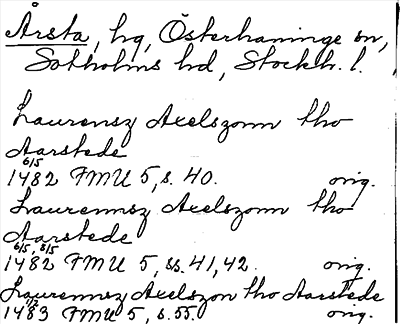 Årsta, hg, Österhaninge sn,
Sotholms hd, Stockh. l.
Laurensz Axelszonn tho
Aarstede
6/5
1482 FMU 5, s. 40. orig.
Laurennsz Axelszonn tho
Aarstede
6/5, 8/5
1482 FMU 5, ss. 41, 42. orig.
Laurennsz Axelszon tho Aarstede
1483 FMU 5, s. 55. orig.